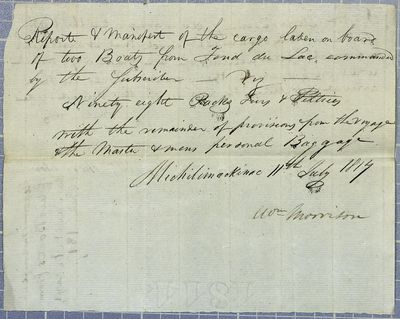 Report & Manifest of the cargo laden on board
of two Boats from Fond du Lac, commanded
by the Subscriber — Viz —
Ninety eight Packs Furs & Peltries
with the remainder of provisions from the voyage
& the Master & mens personal Baggage
Michilimackinac 11th July 1817
Wm Morrison